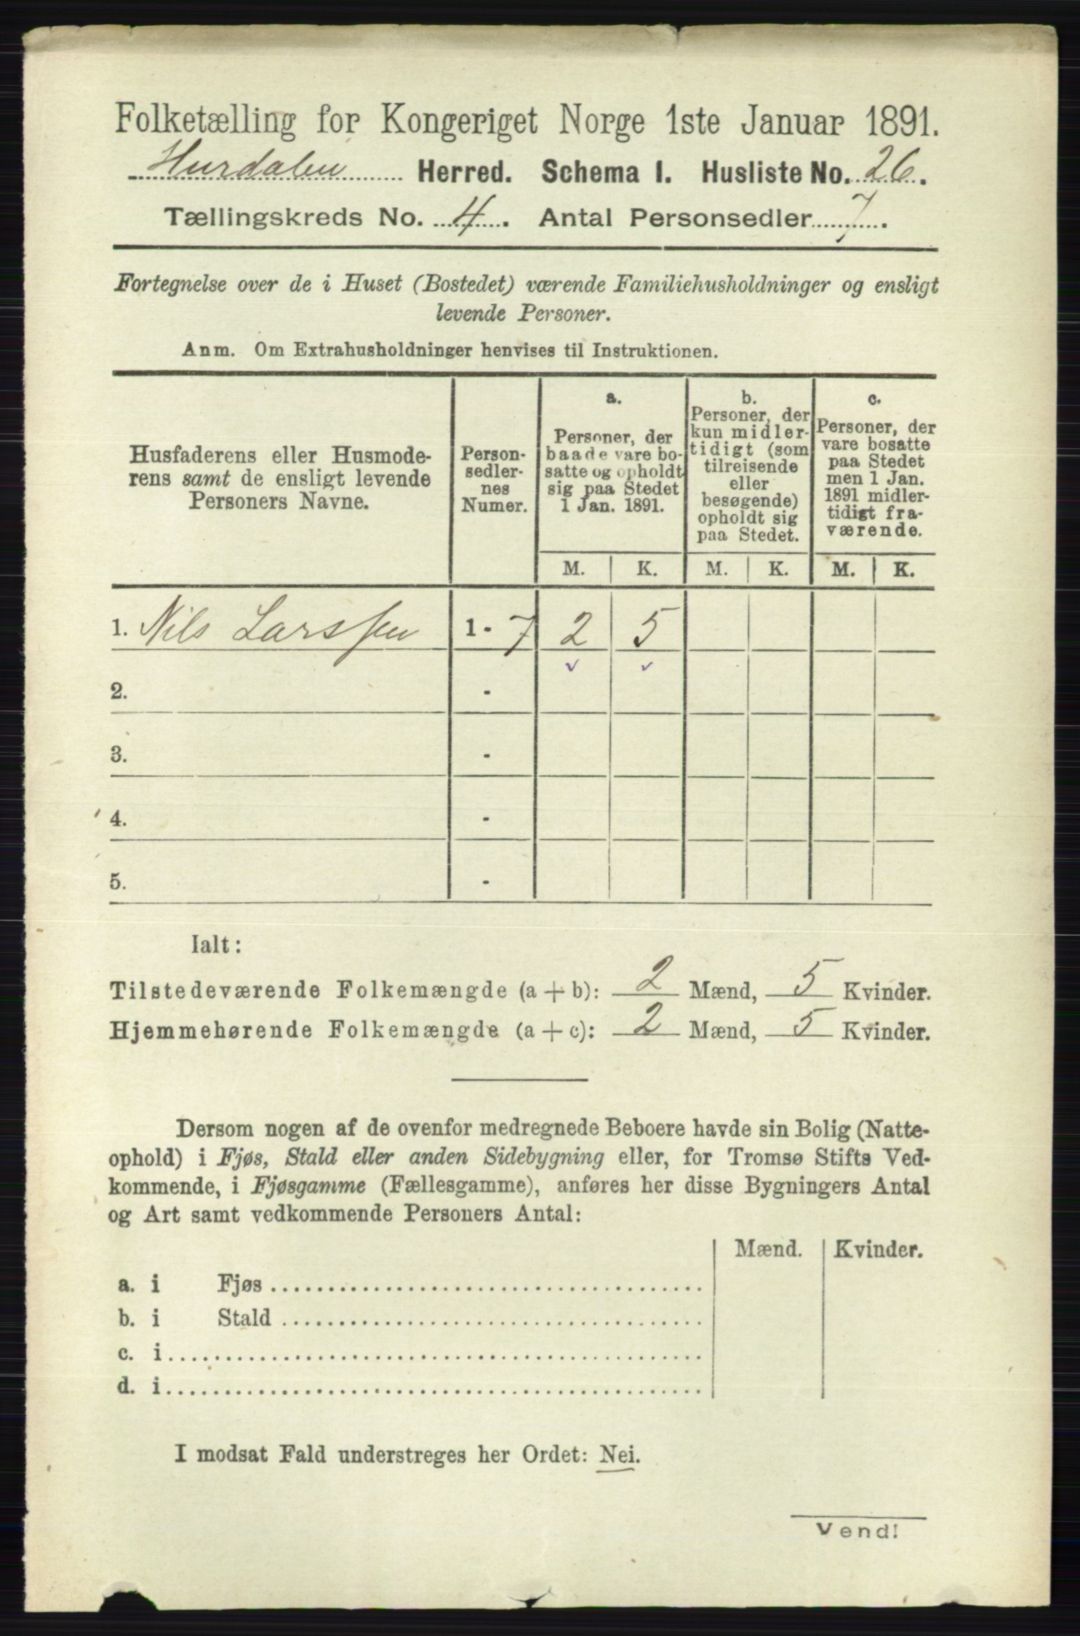 Folketælling for Kongeriget Norge 1ste Januar 1891.
Hurdalen Herred. Schema I. Husliste No. 26.
Tællingskreds No. 4. Antal Personsedler 7.
Fortegnelse over de i Huset (Bostedet) værende Familiehusholdninger og ensligt
levende Personer.
Anm. Om Extrahusholdninger henvises til Instruktionen.
Husfaderens eller Husmode-
rens samt de ensligt levende
Personers Navne.
Person-
sedler-
nes
Numer.
a.
Personer, der
baade vare bo-
satte og opholdt
sig paa Stedet
1 Jan. 1891.
b.
Personer, der
kun midler-
tidigt (som
tilreisende
eller
besøgende)
opholdt sig
paa Stedet.
c.
Personer, der
vare bosatte
paa Stedet
men 1 Jan.
1891 midler-
tidigt fra-
værende.
M. K. M. K. M. K.
1. Nils Larssen 1 - 7 2 5
2. -
3. -
4. -
5. -
Ialt:
Tilstedeværende Folkemængde (a + b): 2 Mænd, 5 Kvinder.
Hjemmehørende Folkemængde (a + c): 2 Mænd, 5 Kvinder.
Dersom nogen af de ovenfor medregnede Beboere havde sin Bolig (Natte-
ophold) i Fjøs, Stald eller anden Sidebygning eller, for Tromsø Stifts Ved-
kommende, i Fjøsgamme (Fællesgamme), anføres her disse Bygningers Antal
og Art samt vedkommende Personers Antal:
Mænd. Kvinder.
a. i Fjøs
b. i Stald
c. i
d. i
I modsat Fald understreges her Ordet: Nei.
Vend!